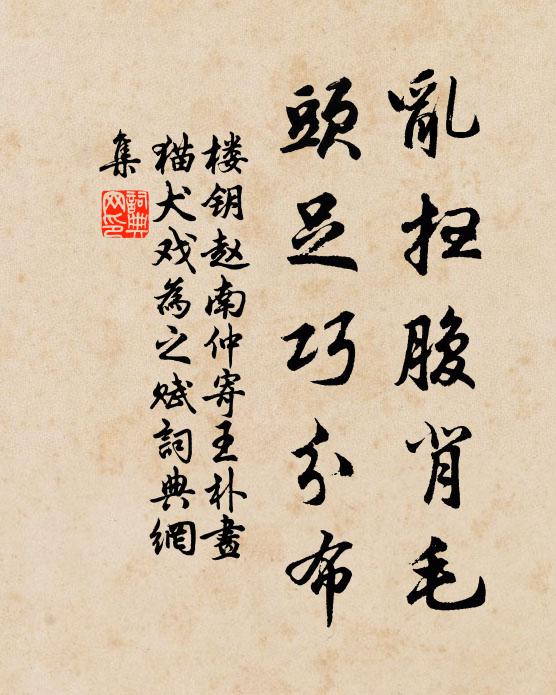 亂扫腹背毛
頭足巧分布
楼钥赵南仲寄王朴畫
猫犬戏為之赋詞典網
集
詞典
网印